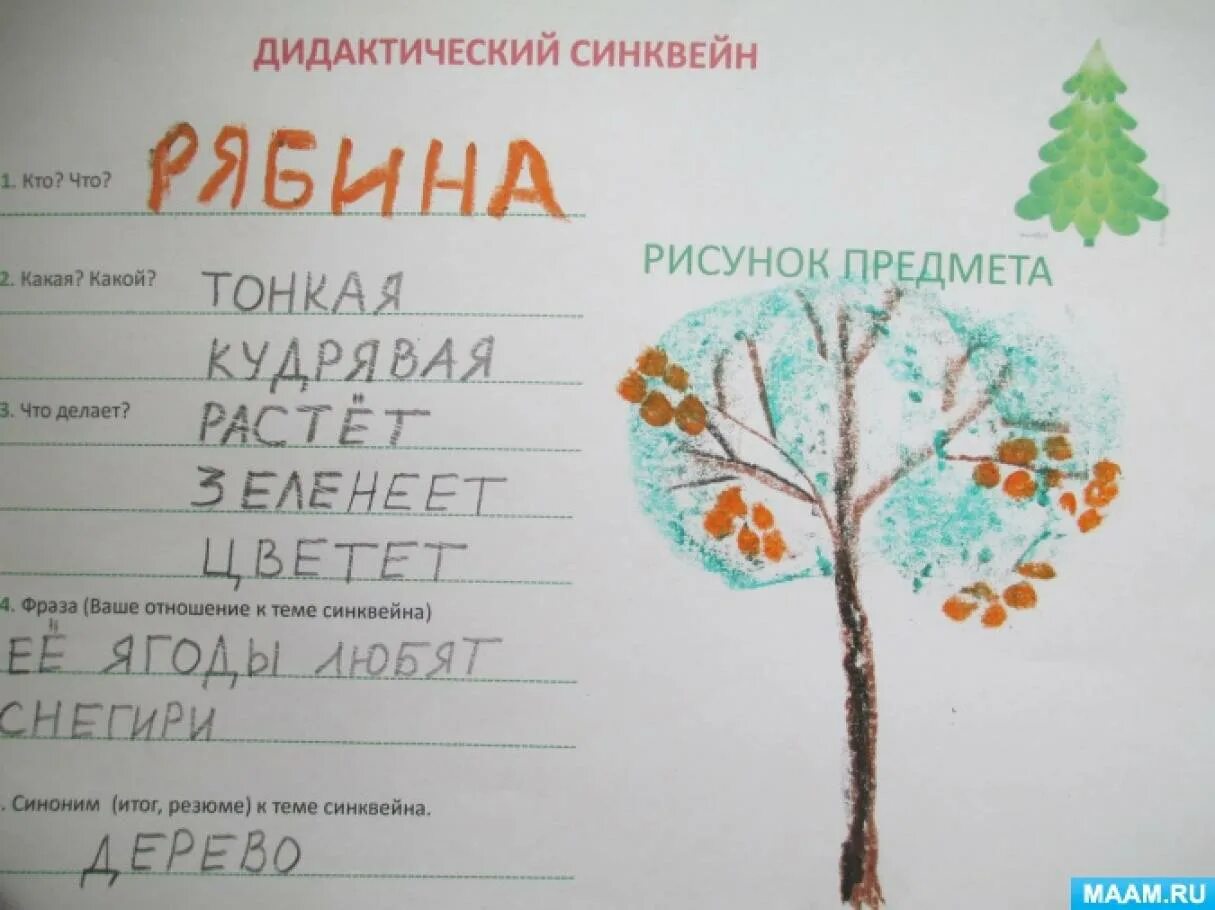 ДИДАКТИЧЕСКИЙ СИНКВЕЙН
1. Кто? Что? РЯБИНА
2. Какая? Какой? ТОНКАЯ
КУДРЯВАЯ
3. Что делает? РАСТЁТ
ЗЕЛЕНЕЕТ
ЦВЕТЕТ
4. Фраза (Ваше отношение к теме синквейна)
ЕЁ ЯГОДЫ ЛЮБЯТ
СНЕГИРИ
. Синоним (итог, резюме) к теме синквейна.
ДЕРЕВО
РИСУНОК ПРЕДМЕТА
MAAM.RU